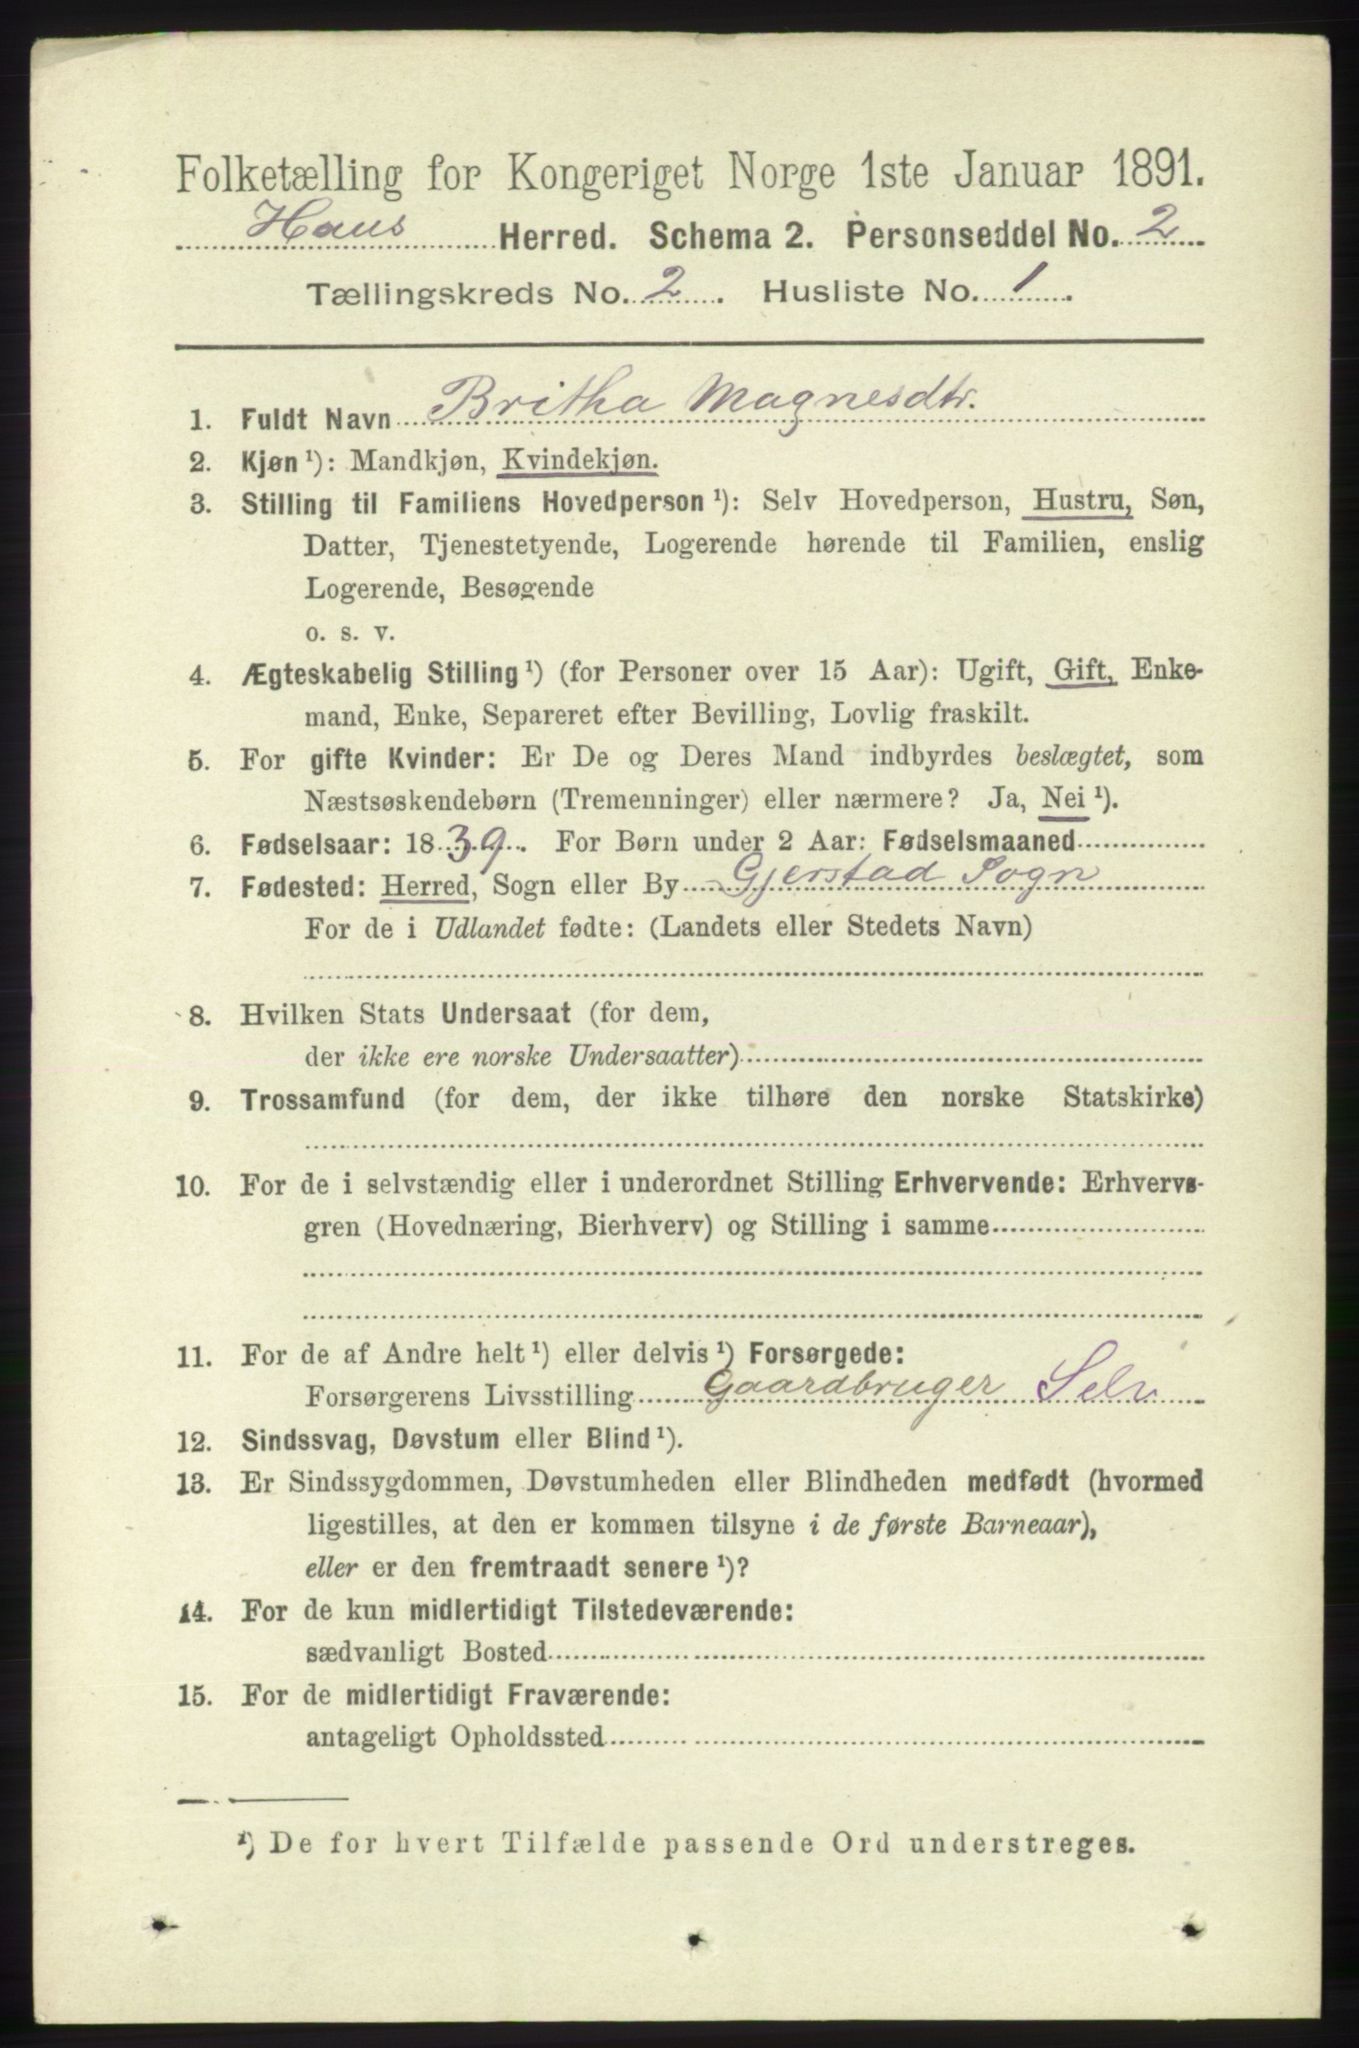 Folketælling for Kongeriget Norge 1ste Januar 1891.
Haus Herred. Schema 2. Personseddel No. 2
Tællingskreds No. 2. Husliste No. 1.
1. Fuldt Navn Britha Magnesdtr.
2. Kjøn ¹): Mandkjøn, Kvindekjøn.
3. Stilling til Familiens Hovedperson ¹): Selv Hovedperson, Hustru, Søn,
Datter, Tjenestetyende, Logerende hørende til Familien, enslig
Logerende, Besøgende
o. s. v.
4. Ægteskabelig Stilling ¹) (for Personer over 15 Aar): Ugift, Gift, Enke-
mand, Enke, Separeret efter Bevilling, Lovlig fraskilt.
5. For gifte Kvinder: Er De og Deres Mand indbyrdes beslægtet, som
Næstsøskendebørn (Tremenninger) eller nærmere? Ja, Nei ¹).
6. Fødselsaar: 1839. For Børn under 2 Aar: Fødselsmaaned
7. Fødested: Herred, Sogn eller By Gjerstad Sogn
For de i Udlandet fødte: (Landets eller Stedets Navn)
8. Hvilken Stats Undersaat (for dem,
der ikke ere norske Undersaatter)
9. Trossamfund (for dem, der ikke tilhøre den norske Statskirke)
10. For de i selvstændig eller i underordnet Stilling Erhvervende: Erhvervs-
gren (Hovednæring, Bierhverv) og Stilling i samme
11. For de af Andre helt ¹) eller delvis ¹) Forsørgede:
Forsørgerens Livsstilling Gaardbruger Selv
12. Sindssvag, Døvstum eller Blind ¹).
13. Er Sindssygdommen, Døvstumheden eller Blindheden medfødt (hvormed
ligestilles, at den er kommen tilsyne i de første Barneaar),
eller er den fremtraadt senere ¹)?
14. For de kun midlertidigt Tilstedeværende:
sædvanligt Bosted
15. For de midlertidigt Fraværende:
antageligt Opholdssted
¹) De for hvert Tilfælde passende Ord understreges.